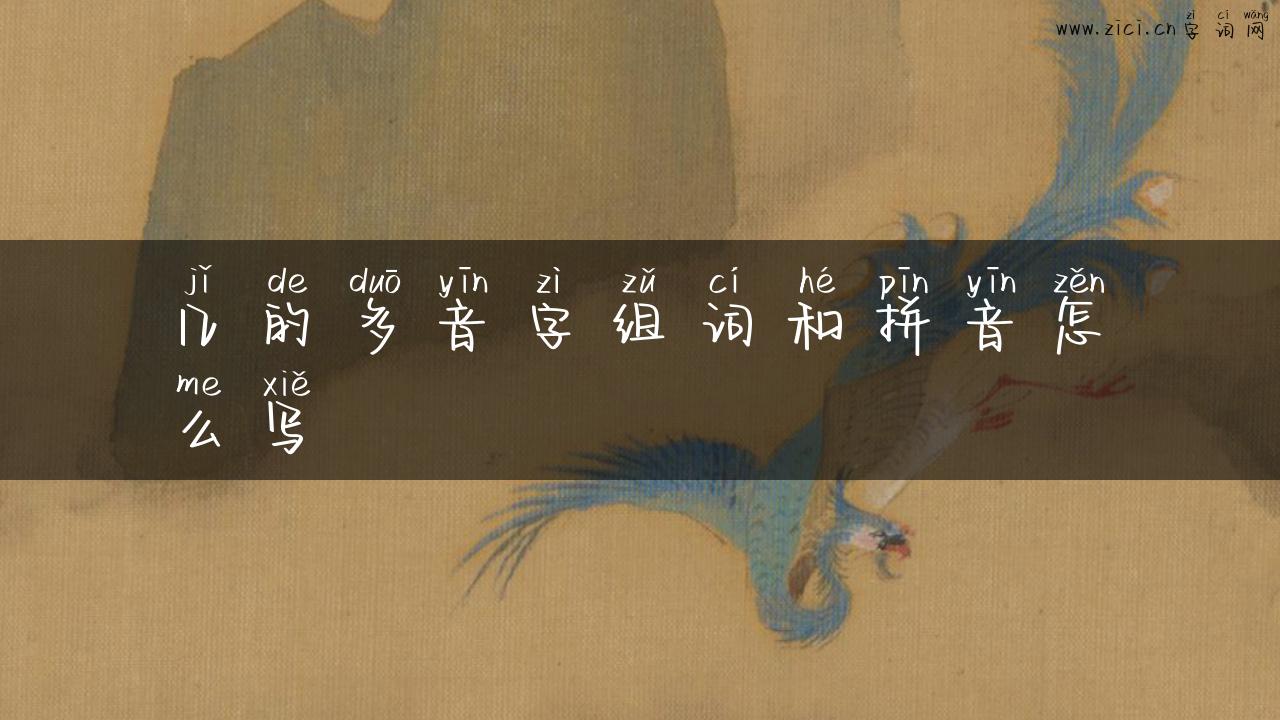 zì cí wǎng
www.zici.cn字词网
jǐ de duō yīn zì zǔ cí hé pīn yīn zěn
几的多音字组词和拼音怎
me xiě
么写